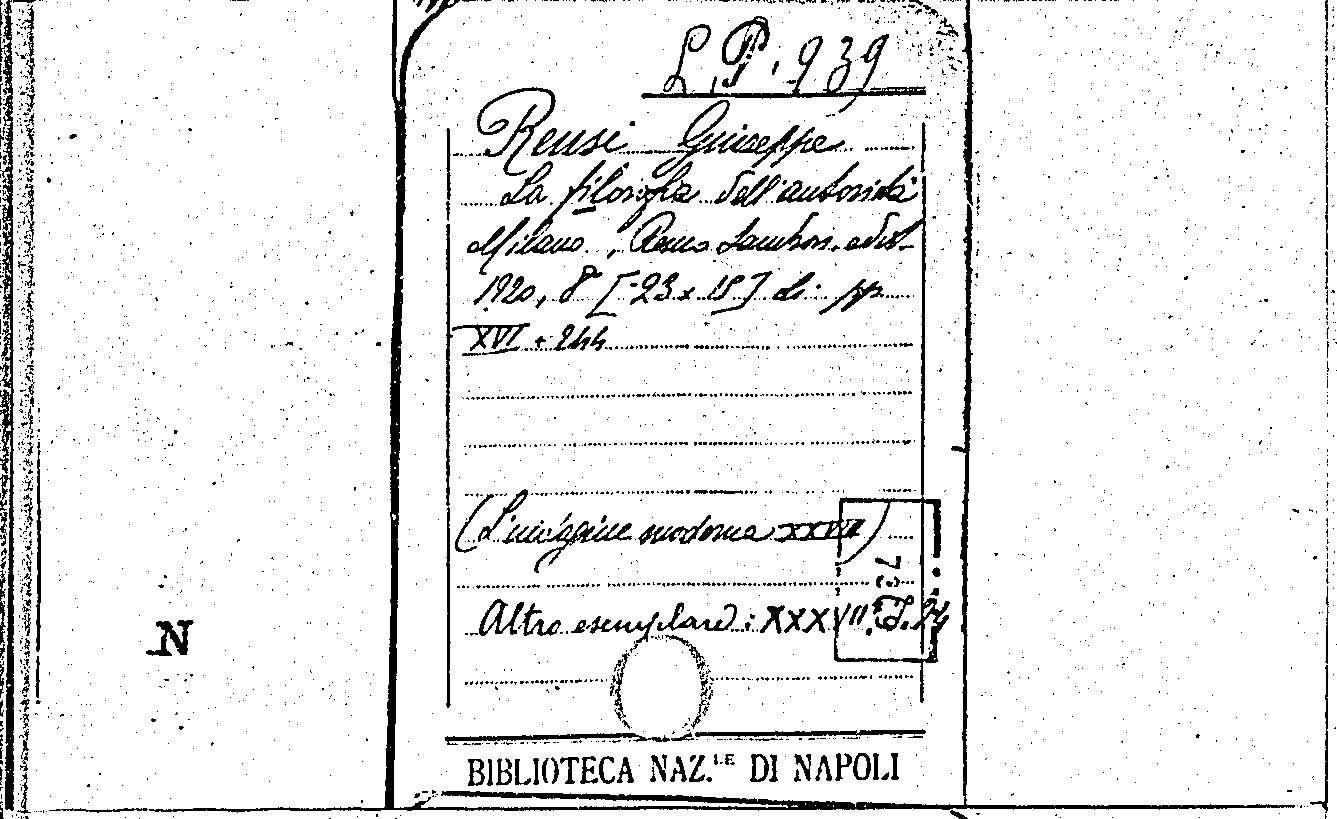 L.P. 939
Rensi Giuseppe
La filosofia dell'autorità
Milano, Remo Sandron edit.
1920, 8° [23 x 15] di pp
XVI + 244
(L'indagine moderna XXVII)
73
Altro esemplare: XXXVII. 24
N
BIBLIOTECA NAZ.LE DI NAPOLI